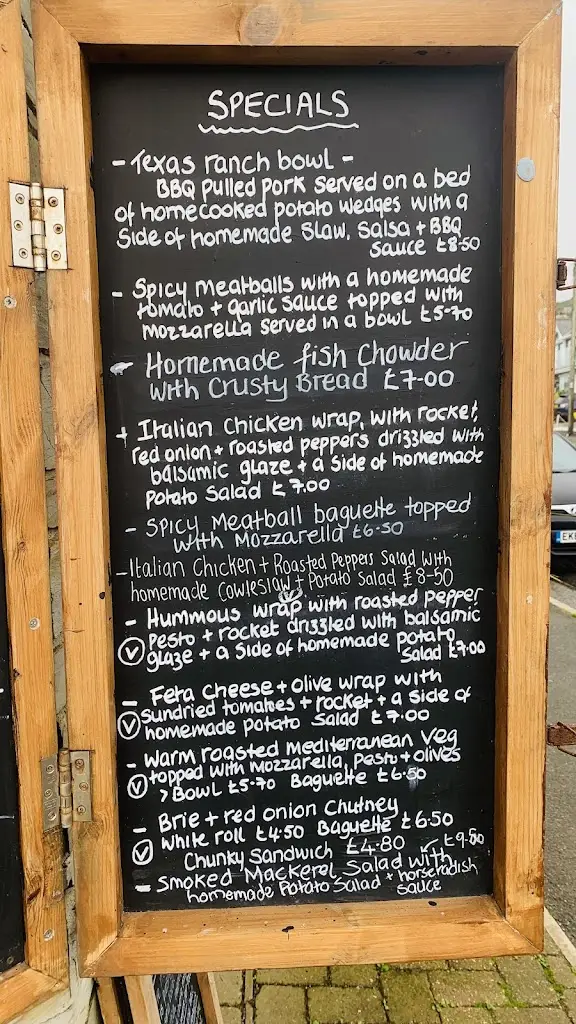 SPECIALS
- Texas ranch bowl -
BBQ pulled pork served on a bed
of homecooked potato wedges with a
side of homemade slaw, salsa + BBQ
sauce £8.50
- Spicy meatballs with a homemade
tomato + garlic sauce topped with
mozzarella served in a bowl £5-70
Homemade fish Chowder
with Crusty Bread £7-00
+ Italian Chicken wrap, with rocket,
red onion + roasted peppers drizzled with
balsamic glaze + a side of homemade
potato salad £7.00
- Spicy Meatball baguette topped
with Mozzarella £6.50
- Italian Chicken + Roasted Peppers Salad with
homemade Cowleslaw + Potato Salad £8-50
- Hummous wrap with roasted pepper
V pesto + rocket drizzled with balsamic
glaze + a side of homemade potato
salad £7.00
- Feta cheese + olive wrap with
V sundried tomatoes + rocket + a side of
homemade potato salad £7.00
- Warm roasted mediterranean veg
V topped with Mozzarella, pesto + olives
> Bowl £5.70 Baguette £6.50
- Brie + red onion chutney
V White roll £4.50 Baguette £6.50
Chunky Sandwich £4.80
- Smoked Mackerel Salad with £9.50
homemade Potato Salad + horseradish
sauce